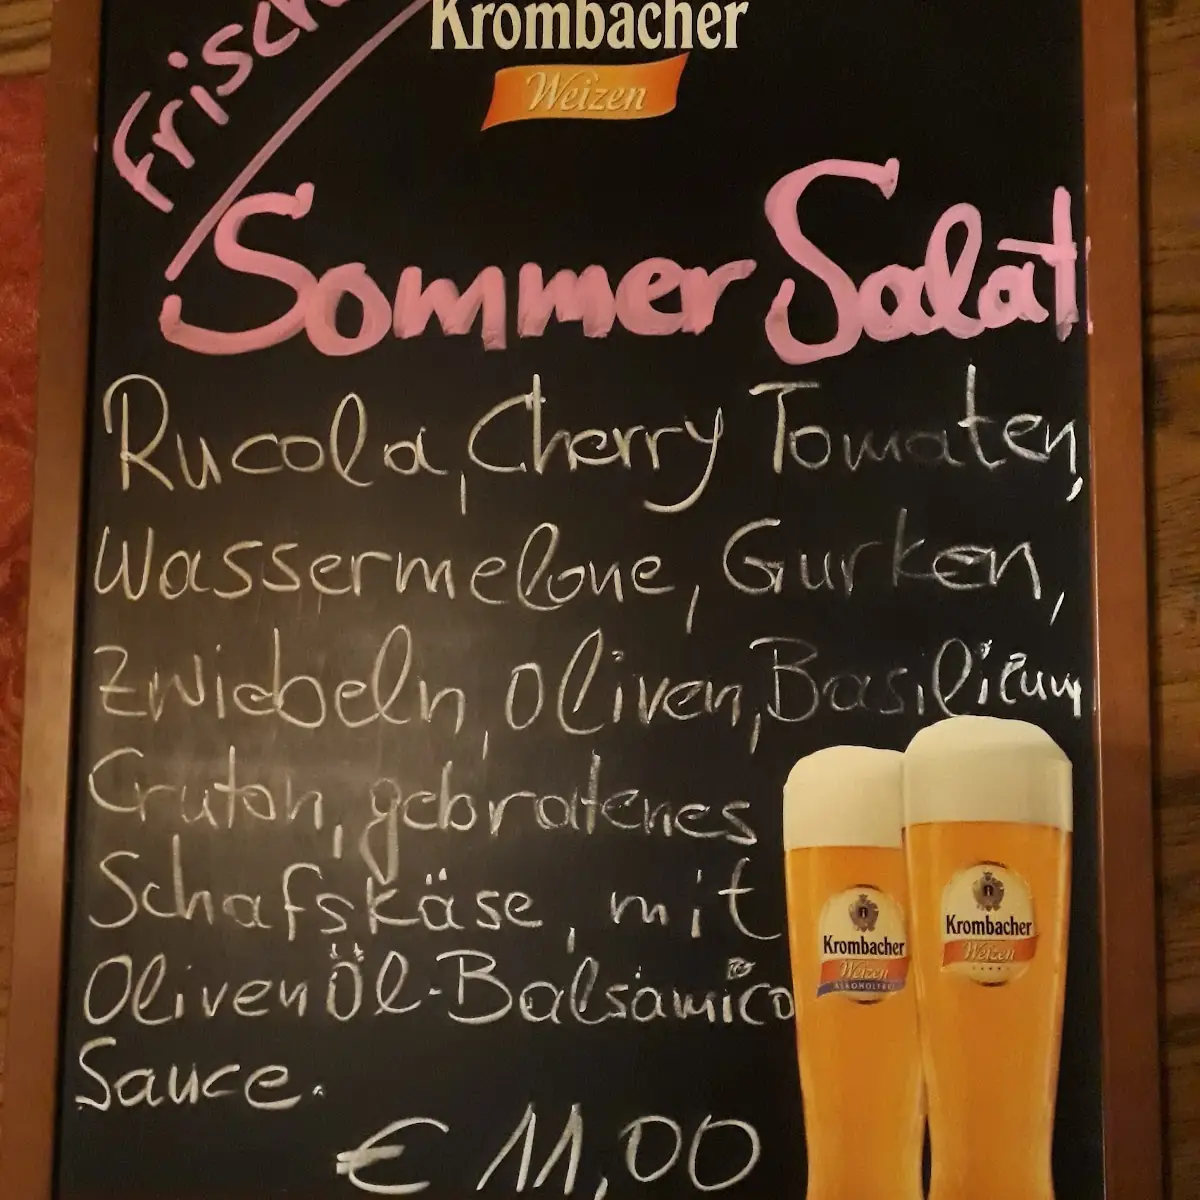 Krombacher
Weizen
Frisch
Sommer Salat
Rucola, Cherry Tomaten,
Wassermelone, Gurken,
Zwiebeln, Oliven, Basilicum
Cruton, gebratenes
Schafskäse, mit
Oliven Öl-Balsamico
Sauce.
€ 11,00
Krombacher
Weizen
ALKOHOLFREI
Krombacher
Weizen